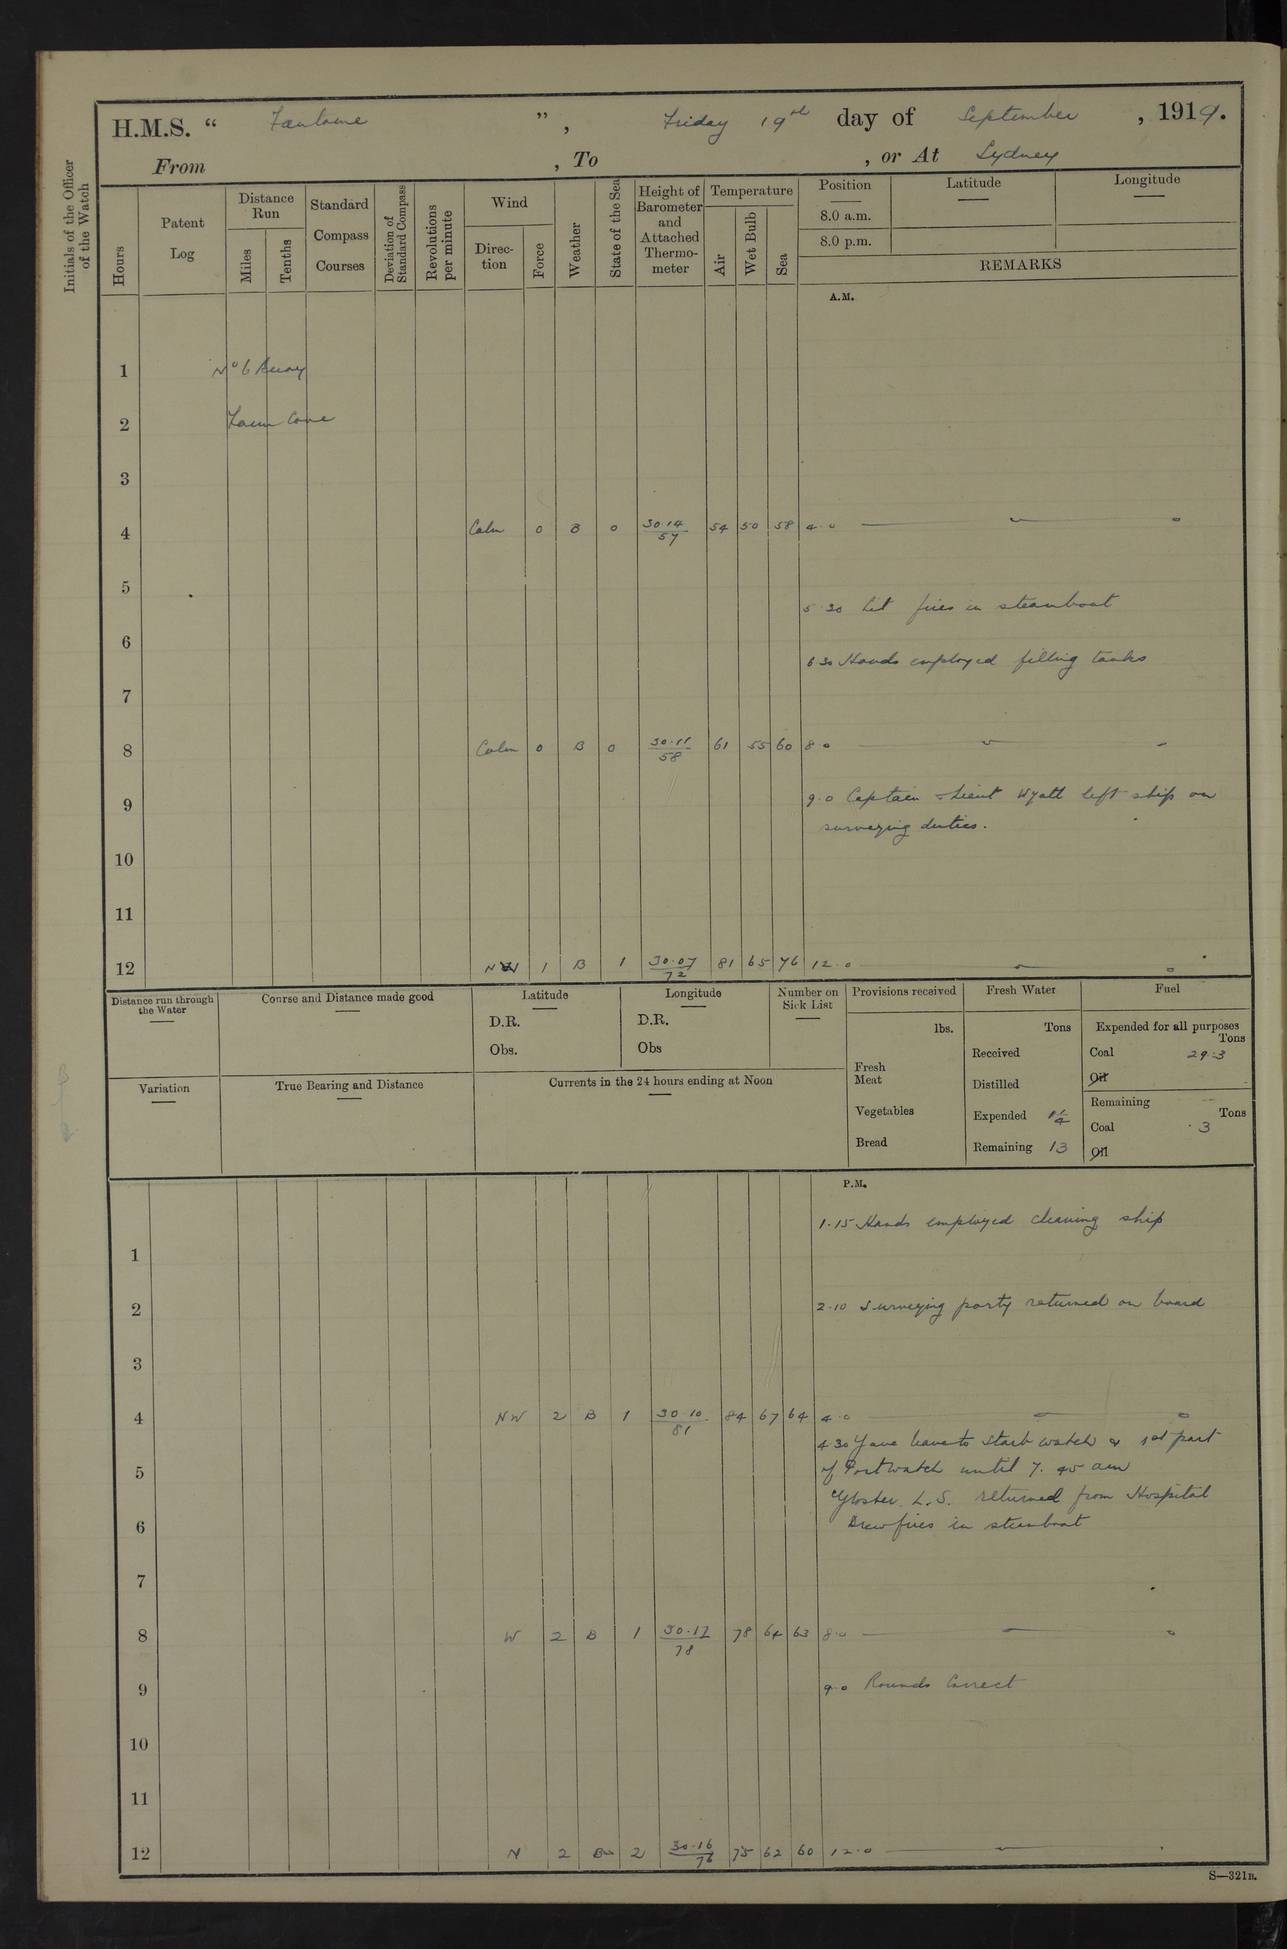 H.M.S. " Fantome ", Friday 19th day of September, 1919.
From , To , or At Sydney
Initials of the Officer of the Watch
Hours
Patent Log
Distance Run
Miles
Tenths
Standard Compass Courses
Deviation of Standard Compass
Revolutions per minute
Wind
Direction
Force
Weather
State of the Sea
Height of Barometer and Attached Thermometer
Temperature
Air
Wet Bulb
Sea
Position
8.0 a.m.
8.0 p.m.
Latitude
Longitude
REMARKS
A.M.
1 No 6 Buoy
2 Farm Cove
3
4 Calm 0 B 0 30.14/57 54 50 58 4.0
5
5.30 Lit fires in steamboat
6
6 30 Hands employed filling tanks
7
8 Calm 0 B 0 30.11/58 61 55 60 8.0
9 9.0 Captain & Lieut Wyatt left ship on
surveying duties.
10
11
12 NW 1 B 1 30.07/72 81 65 76 12.0
Distance run through the Water
Course and Distance made good
Latitude
D.R.
Obs.
Longitude
D.R.
Obs
Number on Sick List
Provisions received
lbs.
Fresh Meat
Vegetables
Bread
Fresh Water
Tons
Received
Distilled
Expended 1¼
Remaining 13
Fuel
Expended for all purposes
Tons
Coal 29.3
Oil
Remaining
Tons
Coal .3
Oil
Variation
True Bearing and Distance
Currents in the 24 hours ending at Noon
P.M.
1.15 Hands employed cleaning ship
1
2 2.10 Surveying party returned on board
3
4 NW 2 B 1 30 10/81 84 67 64 4.0
4 30 Gave leave to Starb watch & 1st part
5 of Port watch until 7.45 am
Gloster L.S. returned from Hospital
6 Drew fires in steamboat
7
8 W 2 B 1 30.17/78 78 64 63 8.0
9 9.0 Rounds Correct
10
11
12 N 2 2 30.16/76 75 62 60 12.0
S—321B.